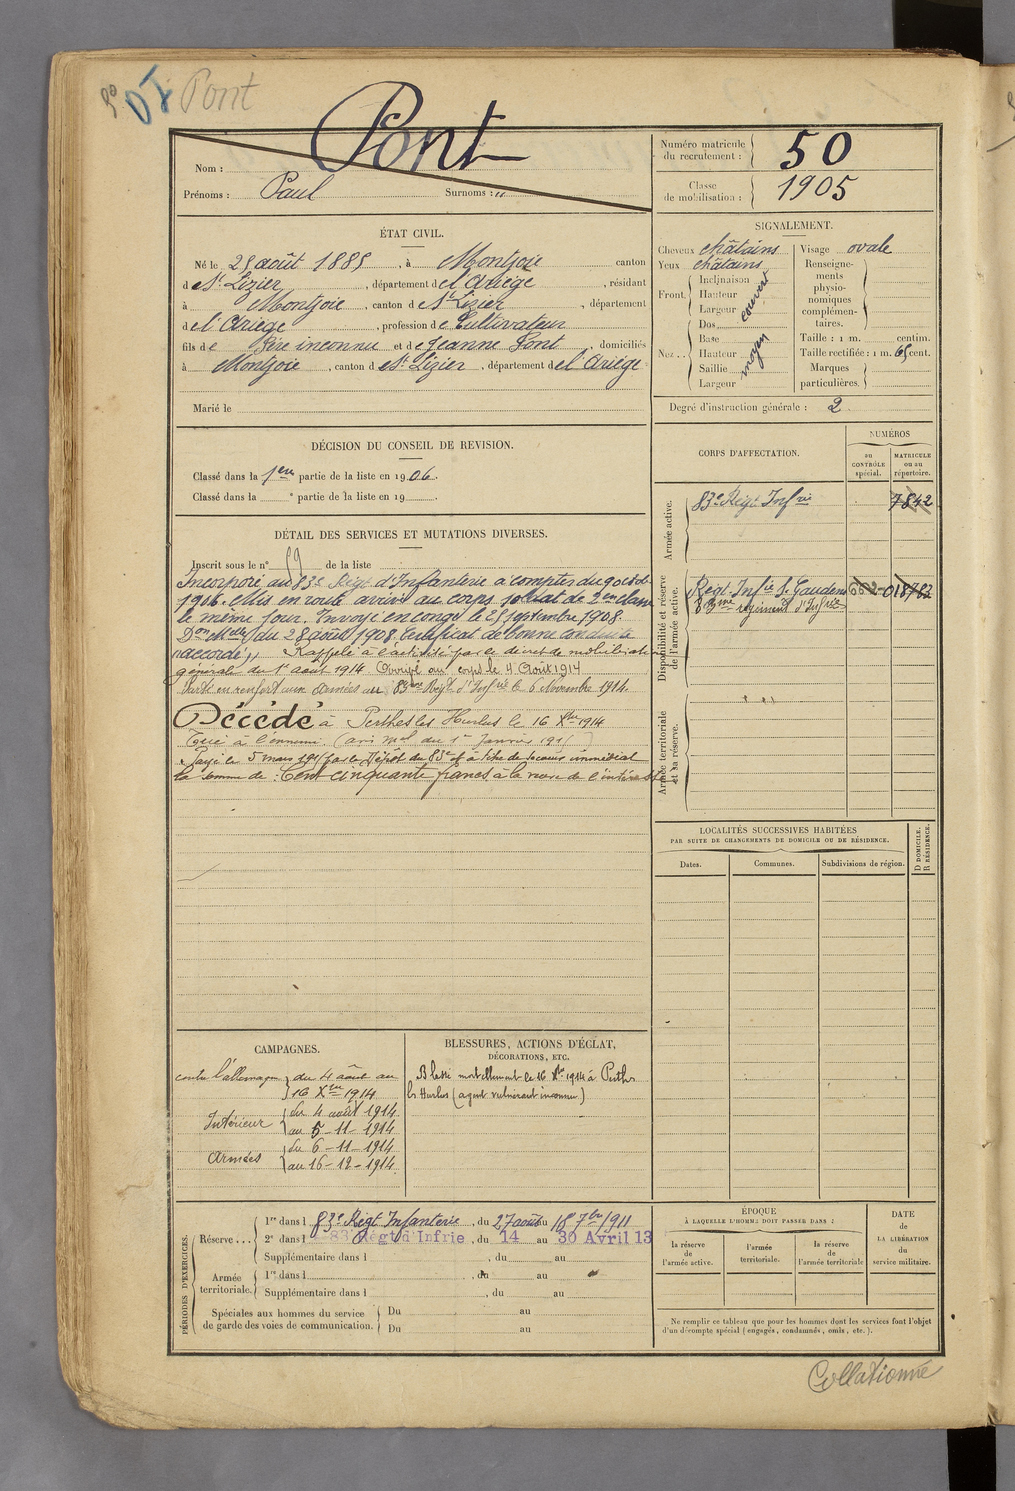 Pont
Nom : Pont
Prénoms : Paul Surnoms : "
Numéro matricule du recrutement : 50
Classe de mobilisation : 1905
ÉTAT CIVIL.
Né le 25 août 1885, à Montjoie canton
de St Lizier, département de l'Ariège, résidant
à Montjoie, canton de St Lizier, département
de l'Ariège, profession de Cultivateur
fils de Père inconnu et de Jeanne Pont, domiciliés
à Montjoie, canton de St Lizier, département de l'Ariège
Marié le
SIGNALEMENT.
Cheveux châtains
Yeux châtains
Front. Inclinaison Hauteur Largeur couvert
Nez.. Dos Base Hauteur Saillie Largeur moyen
Visage ovale
Renseignements physionomiques complémentaires.
Taille : 1 m. centim.
Taille rectifiée : 1 m. 65 cent.
Marques particulières.
Degré d'instruction générale : 2
DÉCISION DU CONSEIL DE REVISION.
Classé dans la 1ere partie de la liste en 1906.
Classé dans la e partie de la liste en 19
CORPS D'AFFECTATION.
NUMÉROS
AU CONTRÔLE spécial.
MATRICULE ou au répertoire.
Armée active.
83e Régt Infrie 7842
Disponibilité et réserve de l'armée active.
Régt Infie St Gaudens 662 018782
83ème régiment d'Infrie
Armée territoriale et sa réserve.
DÉTAIL DES SERVICES ET MUTATIONS DIVERSES.
Inscrit sous le n° 59 de la liste
Incorporé au 83e Régt d'Infanterie à compter du 9 octob.
1906. Mis en route arrivé au corps soldat de 2en classe
le même jour. Envoyé en congé le 25 septembre 1908.
Don Mlle du 28 août 1908. Certificat de bonne conduite
"accordé". Rappelé à l'activité par le décret de mobilisation
générale du 1er août 1914 Arrivé au corps le 4 Août 1914
Parti en renfort aux Armées au 83ème Régt d'Infrie le 6 Novembre 1914.
Décédé à Perthes les Hurlus le 16 Xbre 1914
Tué à l'ennemi (avis mel du 1er Janvier 1915)
Payé le 5 mars 1915 par le Dépôt du 83e à titre de secours immédiat
la somme de : Cent cinquante francs à la mère de l'intéressé
LOCALITÉS SUCCESSIVES HABITÉES
PAR SUITE DE CHANGEMENTS DE DOMICILE OU DE RÉSIDENCE.
Dates. Communes. Subdivisions de région. D DOMICILE. R RÉSIDENCE.
CAMPAGNES.
contre l'allemagne du 4 août au
16 Xbre 1914
Intérieur du 4 août 1914
au 5-11-1914
Armées du 6-11-1914
au 16-12-1914
BLESSURES, ACTIONS D'ÉCLAT,
DÉCORATIONS, ETC.
Blessé mortellement le 16 Xbre 1914 à Perthes
les Hurlus (agent vulnérant inconnu)
PÉRIODES D'EXERCICES.
Réserve...
1re dans l 83e Régt Infanterie, du 27 août au 18 7bre 1911
2e dans l 83 Régt d'Infrie, du 14 au 30 Avril 13
Supplémentaire dans l , du au
Armée territoriale.
1re dans l , du au
Supplémentaire dans l , du au
Spéciales aux hommes du service de garde des voies de communication.
Du au
Du au
ÉPOQUE
À LAQUELLE L'HOMME DOIT PASSER DANS :
la réserve de l'armée active.
l'armée territoriale.
la réserve de l'armée territoriale
DATE de LA LIBÉRATION du service militaire.
Ne remplir ce tableau que pour les hommes dont les services font l'objet
d'un décompte spécial (engagés, condamnés, omis, etc.).
Collationné